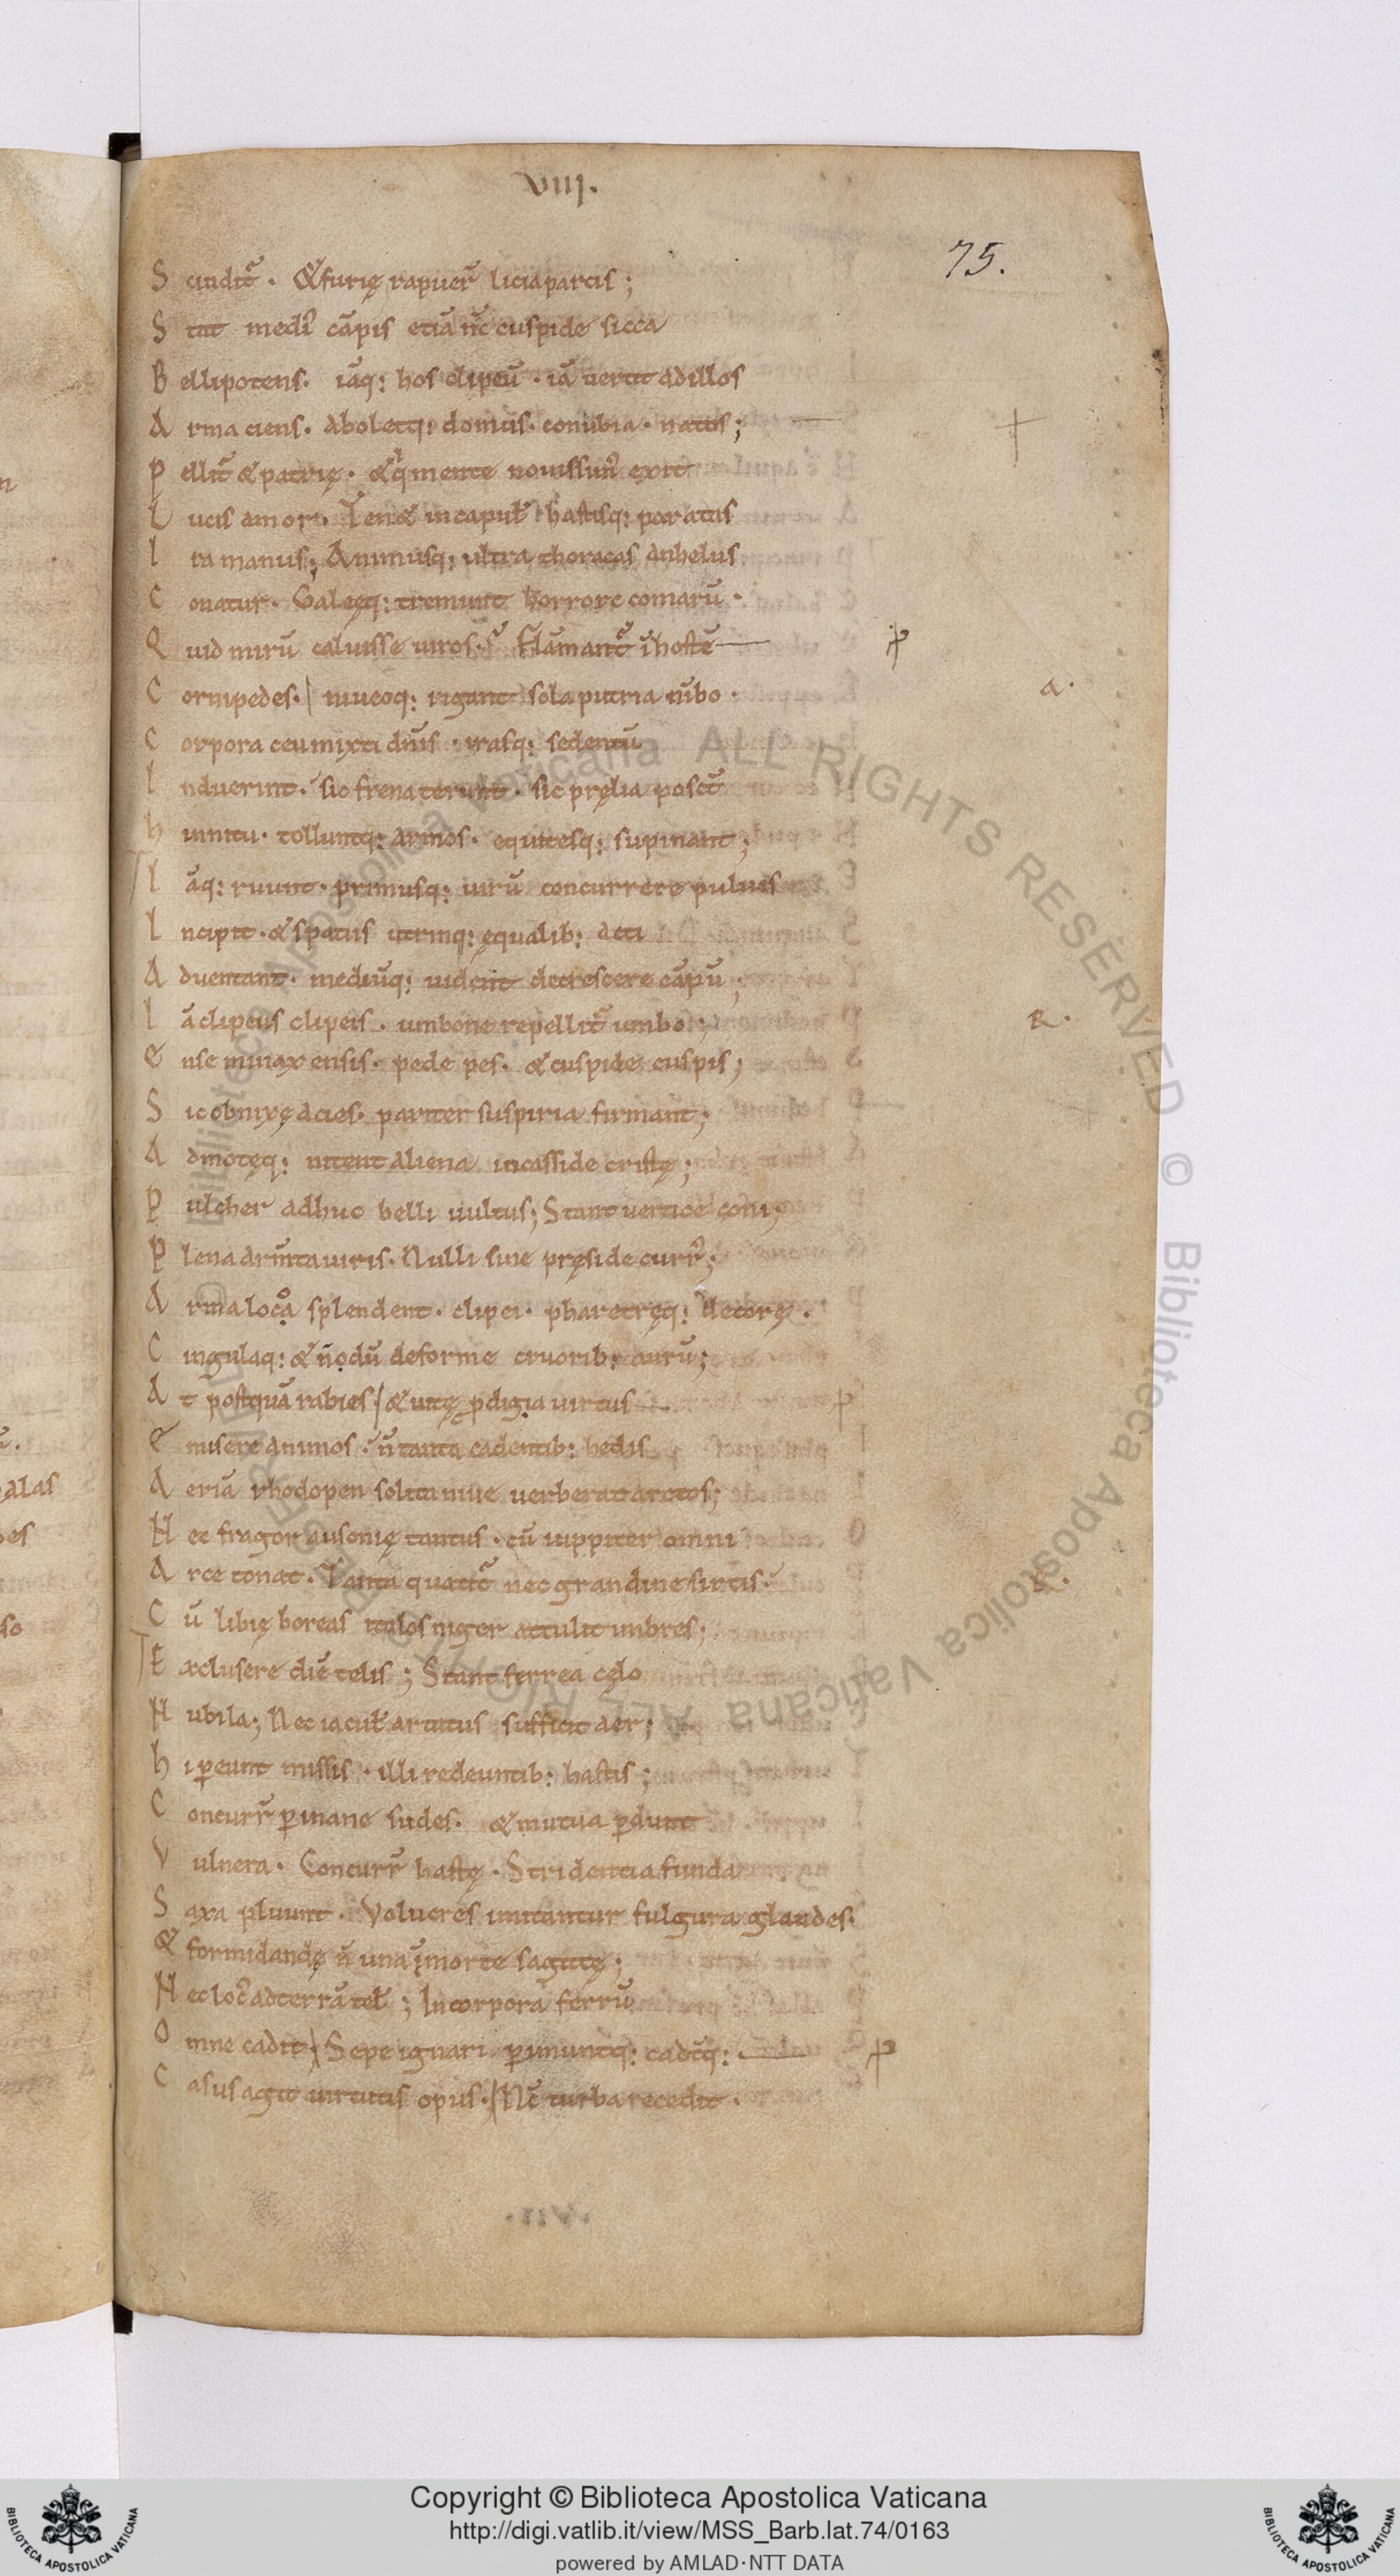 VIII.
75.
S cindit᷑ . & furię rapuer̄ licia parcis ;
S tat medi᷑ cāpis etiā n̄c cuspide sicca
B ellipotens . iāq; hos clipeū . iā uertit ad illos
A rma ciens . abolet q; domus . conubia . natos ;
P ellit᷑ & patrię . & q̇ mente nouissim᷑ exit
L ucis amor . Tenet in capul̄ hastisq; paratas
I ra manus ; Animusq; ultra thoracas anhelus
C onatur . Galeęq; tremunt horrore comarū .
Q uid mirū caluisse uiros . Flāmant᷑ ī hostē
C ornipedes . niueoq; rigant sola putria nībo .
a .
C orpora ceu mixti dn̄is . irasq; sedentū
I nduerint . sic frena terunt . sic pręlia posct̄
h innitu . tolluntq; armos . equitesq; supinant ;
I āq; ruunt . primusq; uirū concurrere puluis
I ncipit . & spatiis utrinq; ęqualib; acti
A duentant . mediūq; uident decrescere cāpū ;
I ā clipeus clipeis . umbone repellit᷑ umbo ;
R .
E nse minax ensis . pede pes . & cuspide cuspis ;
S ic obnixę acies . pariter suspiria firmant ;
A dmotęq; nitent aliena in casside cristę ;
P ulcher adhuc belli uultus ; Stant uertice coni ;
P lena armta uiris . Nulli sine pręside curr᷑ ;
A rma loco splendent . clipei . pharetręq; decorę .
C ingulaq; & n̄odū deforme cruorib; aurū ;
A t postquā rabies & uitę ꝓdigia uirtus
E misere animos . n̄ tanta cadentib; hedis
A eriā rhodopen solita niue uerberat arctos ;
N ec fragor ausonię tantus . cū iuppiter omni
A rce tonat . Tanta quatit᷑ nec grandine sirtis .
R .
C ū libię boreas italos niger attulit imbres ;
E xclusere diē telis ; Stant ferrea cęlo
N ubila ; Nec iacul̄ artatus sufficit aer ;
h i ꝑeunt missis . illi redeuntib; hastis ;
C oncurr̄ ꝑ inane sudes . & mutua ꝑdunt
V ulnera . Concurr̄ hastę . Stridentia funda
S axa pluunt . Volucres imitantur fulgura glandes .
& formidandę n̄ una ī morte sagittę ;
N ec loc᷑ ad terrā tel̄ ; In corpora ferrū
O mne cadit Sepe ignari ꝑimuntq; cadt̄q;
C asus agit uirtutis opus . Nc̄ turba recedit .
Copyright © Biblioteca Apostolica Vaticana
http://digi.vatlib.it/view/MSS_Barb.lat.74/0163
powered by AMLAD·NTT DATA